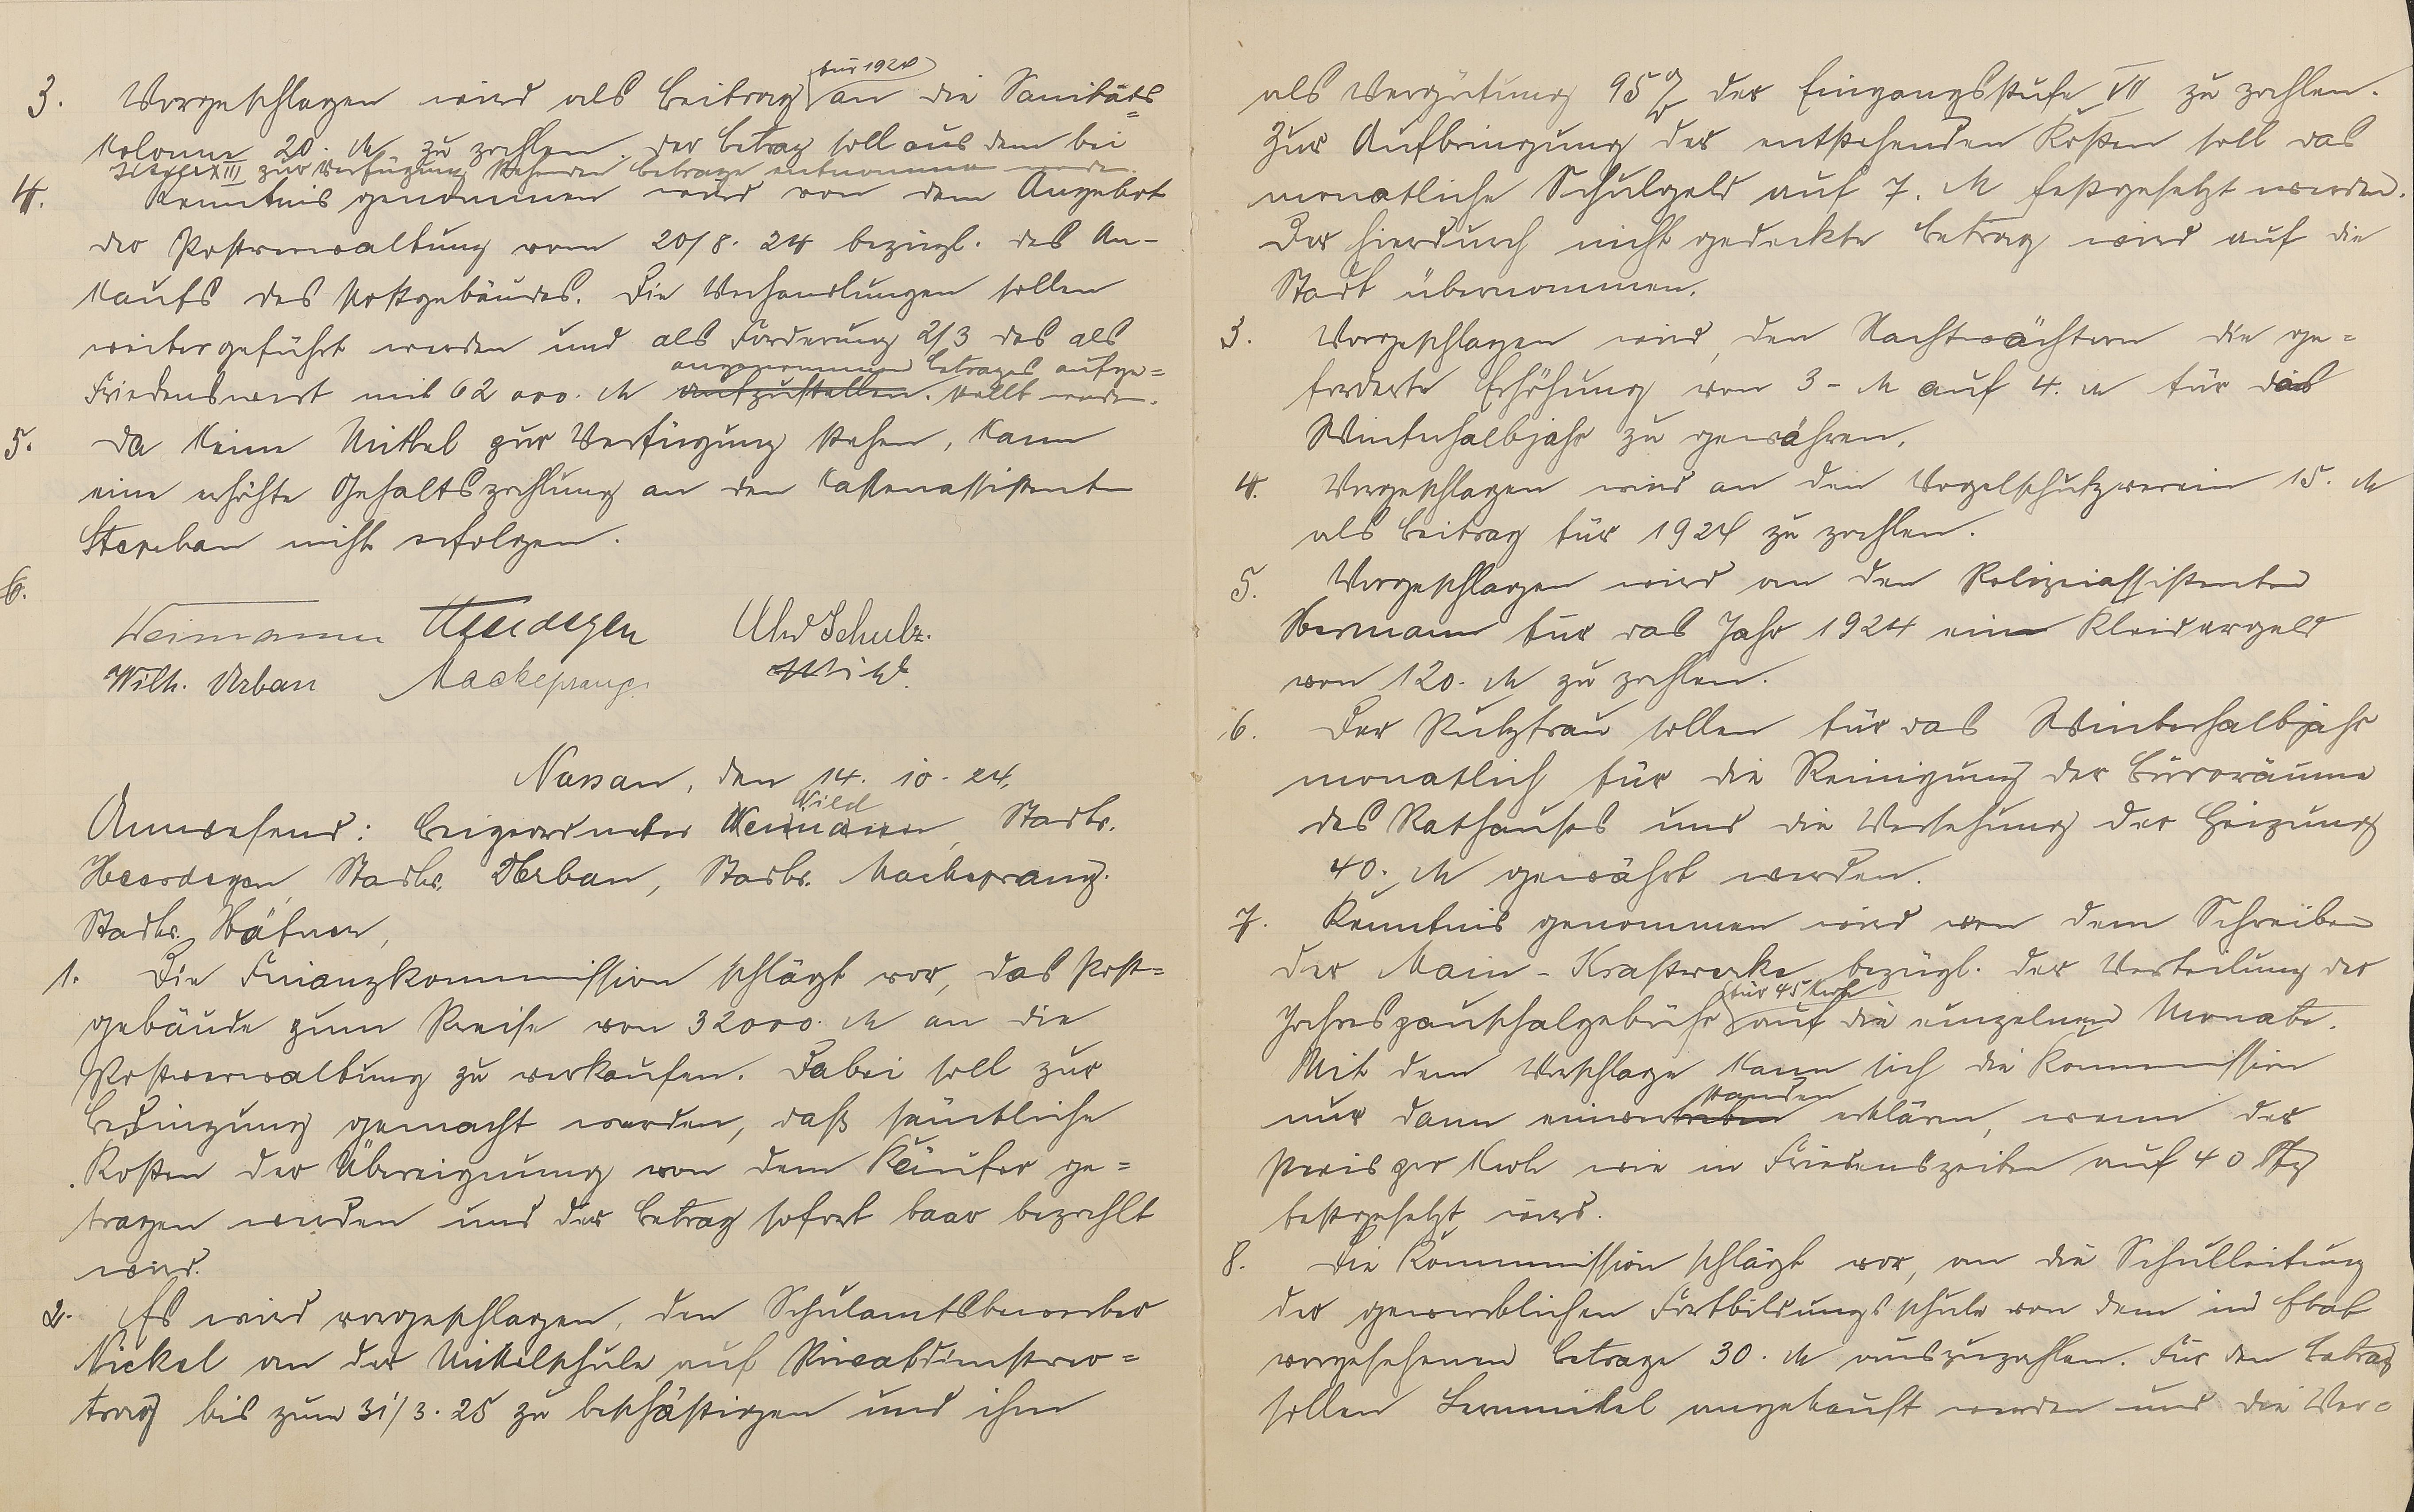 3. Vorgeschlagen wird als Beitrag für 1924 an die Sanitäts=
kolonne 20. M zu zahlen. Der Betrag soll aus dem bei
Titel XIII zur Verfügung stehenden Betrage entnommen werden.
4. Kenntnis genommen wird von dem Angebot
der Postverwaltung vom 20/8. 24 bezügl. des An-
kaufs des Postgebäudes. Die Verhandlungen sollen
weitergeführt werden und als Forderung 2/3 des als
angenommenen Betrages aufge=
Friedenswert mit 62 000. M aufzustellen. stellt werden.
5. Da keine Mittel zur Verfügung stehen, kann
eine erhöhte Gehaltszahlung an den Kassenassistenten
Stephan nicht erfolgen.
6.
Weimann Heerdegen Uhr Schulz.
Wilh. Urban Mackeprang. Wild.
Nassau, den 14. 10. 24.
Wild
Anwesend: Beigeordneter Weimann, Stadtv.
Heerdegen, Stadtv. Urban, Stadtv. Mackeprang.
Stadtv. Häfner,
1. Die Finanzkommission schlägt vor, das Post=
gebäude zum Preise von 32000. M an die
Postverwaltung zu verkaufen. Dabei soll zur
Bedingung gemacht werden, daß sämtliche
Kosten der Übereignung von dem Käufer ge=
tragen werden und der Betrag sofort baar bezahlt
wird.
2. Es wird vorgeschlagen, den Schulamtsbewerber
Nickel an der Mittelschule auf Privatdienstver=
trag bis zum 31/3. 25 zu beschäftigen und ihm
als Vergütung 95% der Eingangsstufe VII zu zahlen.
Zur Aufbringung der entstehenden Kosten soll das
monatliche Schulgeld auf 7. M festgesetzt werden.
Der hierdurch nicht gedeckte Betrag wird auf die
Stadt übernommen.
3. Vorgeschlagen wird, den Nachtwächtern die ge=
forderte Erhöhung von 3 - M auf 4. M für das
Winterhalbjahr zu gewähren.
4. Vorgeschlagen wird an den Vogelschutzverein 15. M
als Beitrag für 1924 zu zahlen.
5. Vorgeschlagen wird an den Polizeiassistenten
Hermann für das Jahr 1924 ein Kleidergeld
von 120. M zu zahlen.
6. Der Putzfrau sollen für das Winterhalbjahr
monatlich für die Reinigung der Büroräume
des Rathauses und die Versehung der Heizung
40. M gewährt werden.
7. Kenntnis genommen wird von dem Schreiben
der Main-Kraftwerke bezügl. der Verteilung der
Jahrespauschalgebühr für 45 Kwh auf die einzelnen Monate.
Mit dem Vorschlage kann sich die Kommission
standen
nur dann einvertreben erklären, wenn der
Preis per Kwh wie in Friedenszeiten auf 40 Pfg
festgesetzt wird.
8. Die Kommission schlägt vor, an die Schulleitung
der gewerblichen Fortbildungsschule von dem im Etat
vorgesehenen Betrage 30. M auszuzahlen. Für den Betrag
sollen Lernmittel angekauft werden und die Ver=